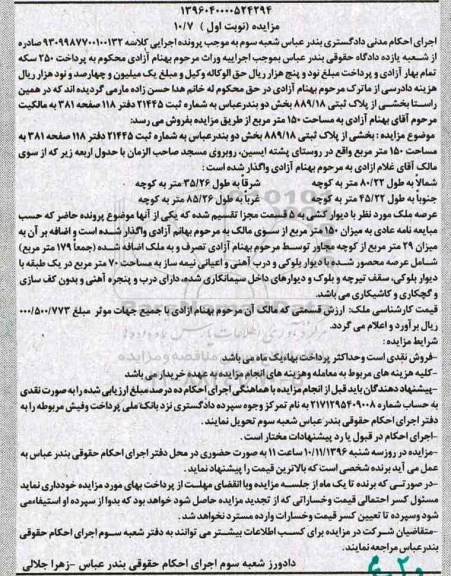 ۱۳۹۶۰۴۰۰۰۰۵۲۴۲۹۴
مزایده (نوبت اول) ۱۰/۷
اجرای احکام مدنی دادگستری بندر عباس شعبه سوم به موجب پرونده اجرایی کلاسه ۹۳۰۹۹۸۷۷۰۰۱۰۰۱۳۲ صادره
از شعبه یازده دادگاه حقوقی بندر عباس بموجب اجراییه وراث مرحوم بهنام آزادی محکوم به پرداخت ۲۵۰ سکه
تمام بهار آزادی و پرداخت مبلغ نود و پنج هزار ریال حق الوکاله وکیل و مبلغ یک میلیون و چهارصد و نود هزار ریال
هزینه دادرسی از ماترک مرحوم بهنام آزادی در حق محکوم له خانم هدا حسن زاده مارمی گردیده اند که در همین
راستا بخشی از پلاک ثبتی ۸۸۹/۱۸ بخش دو بندرعباس به شماره ثبت ۲۱۴۴۵ دفتر ۱۱۸ صفحه ۳۸۱ به مالکیت
مرحوم آقای بهنام آزادی به مساحت ۱۵۰ متر مربع از طریق مزایده بفروش می رسد:
موضوع مزایده : بخشی از پلاک ثبتی ۸۸۹/۱۸ بخش دو بندرعباس به شماره ثبت ۲۱۴۴۵ دفتر ۱۱۸ صفحه ۳۸۱ به
مساحت ۱۵۰ متر مربع واقع در روستای پشته ایسین، روبروی مسجد صاحب الزمان با حدود اربعه زیر که از سوی
مالک آقای غلام ازادی به مرحوم بهنام آزادی واگذار شده است :
شمالاً به طول ۸۰/۲۲ متر به کوچه شرقاً به طول ۳۵/۲۶ متر به کوچه
جنوباً به طول ۴۵/۲۲ متر به کوچه غرباً به طول ۸۵/۲۶ متر به کوچه
عرصه ملک مورد نظر با دیوار کشی به ۵ قسمت مجزا تقسیم شده که یکی از آنها موضوع پرونده حاضر که حسب
مبایعه نامه عادی به میزان ۱۵۰ متر مربع از سوی مالک به مرحوم بهنام آزادی واگذار شده است و اضافه بر آن به
میزان ۲۹ متر مربع از کوچه مجاور توسط مرحوم بهنام آزادی تصرف و به ملک اضافه شده (جمعاً ۱۷۹ متر مربع)
شامل عرصه محصور شده با دیوار بلوکی و درب آهنی و اعیانی نیمه ساز به مساحت ۷۰ متر مربع در یک طبقه با
دیوار بلوکی، سقف تیرچه و بلوک و دیوارهای داخل سیمانکاری شده، دارای درب و پنجره آهنی و بدون کف سازی
و گچکاری و کاشیکاری می باشد.
قیمت کارشناسی ملک: ارزش قسمتی که مالک آن مرحوم بهنام ازادی با جمیع جهات موثر مبلغ ۰۰۰/۵۰۰/۷۷۳
ریال برآورد و اعلام می گردد.
شرایط مزایده :
-فروش نقدی است وحداکثر پرداخت بهاءیک ماه می باشد
-کلیه هزینه های مربوط به معامله وهزینه های انجام مزایده به عهده خریدار می باشد
-پیشنهاد دهندگان باید قبل از انجام مزایده با هماهنگی اجرای احکام ده درصد مبلغ ارزیابی شده را به صورت نقدی
به حساب شماره ۲۱۷۱۲۹۵۴۰۹۰۰۸ به نام تمرکز وجوه سپرده دادگستری نزد بانک ملی پرداخت وفیش مربوطه را به
دفتر اجرای احکام حقوقی بندر عباس شعبه سوم تحویل نمایند.
-اجرای احکام در قبول یا رد پیشنهادات مختار است.
-مزایده در روز سه شنبه ۱۰/۱۱/۱۳۹۶ ساعت ۱۱ به صورت حضوری در محل دفتر اجرای احکام حقوقی بندر عباس به
عمل می آید برنده شخصی است که بالاترین قیمت را پیشنهاد نماید.
-در صورتی که برنده تا یک ماه از جلسه مزایده ویا انقضای مهلت از پرداخت بهای مورد مزایده خودداری نماید
مسئول کسر احتمالی قیمت وخساراتی که از تجدید مزایده حاصل شود خواهد بود که بدوا از سپرده او استیفاءمی
شود وسپرده تا تعیین کسر قیمت وخسارات وارده مسترد نخواهد شد .
-متقاضیان شرکت در مزایده برای کسب اطلاعات بیشتر می توانند به دفتر شعبه سوم اجرای احکام حقوقی
بندرعباس مراجعه نمایند.
دادورز شعبه سوم اجرای احکام حقوقی بندر عباس -زهرا جلالی